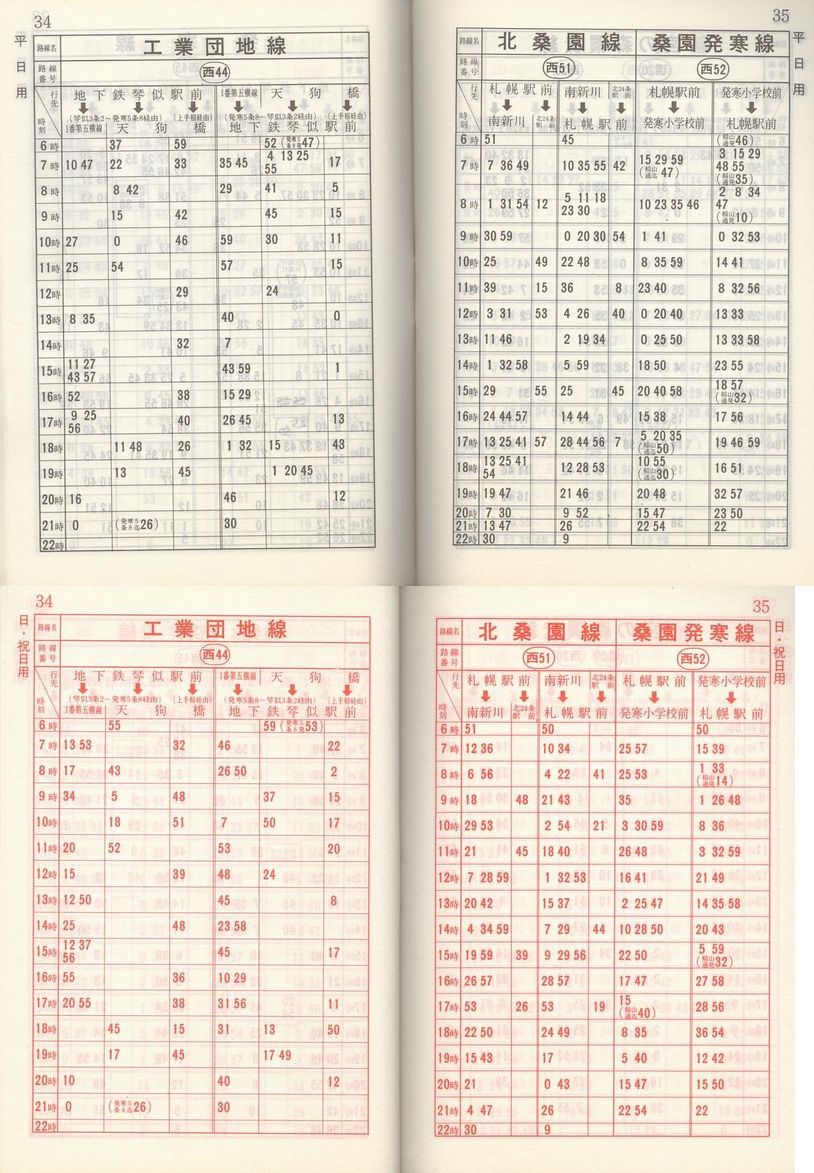 34
平日用
路線名 工業団地線
路線番号 西44
行先 時刻
地下鉄琴似駅前 1番第五横線 天狗橋
(琴似3条2〜発寒5条8経由) (上手稲経由) (発寒5条8〜琴似3条2経由) (上手稲経由)
1番第五横線 天狗橋 地下鉄琴似駅前
6時 37 59 52 (発寒5条8発47)
7時 10 47 22 33 35 45 4 13 25 55 17
8時 8 42 29 41 5
9時 15 42 45 15
10時 27 0 46 59 30 11
11時 25 54 57 15
12時 29 24
13時 8 35 40 0
14時 32 7
15時 11 27 43 57 43 59 1
16時 52 38 15 29
17時 9 25 56 40 26 45 13
18時 11 48 26 1 32 15 43
19時 13 45 1 20 45
20時 16 46 12
21時 0 (発寒5条8迄26) 30
22時
35
平日用
路線名 北桑園線 桑園発寒線
路線番号 西51 西52
行先 時刻
札幌駅前 南新川 北24条駅前 札幌駅前 発寒小学校前
南新川 北24条駅前 札幌駅前 発寒小学校前 札幌駅前
6時 51 45 (稲山通発46)
7時 7 36 49 10 35 55 42 15 29 59 (稲山通迄47) 3 15 29 48 55 (稲山通発35)
8時 1 31 54 12 5 11 18 23 30 10 23 35 46 2 8 34 47 (稲山通発10)
9時 30 59 0 20 30 54 1 41 0 32 53
10時 25 49 22 48 8 35 59 14 41
11時 39 15 36 8 23 40 8 32 56
12時 3 31 53 4 26 40 0 20 40 13 33
13時 11 46 2 19 34 0 25 50 13 33 58
14時 1 32 58 5 59 18 50 23 55
15時 29 55 25 45 20 40 58 18 57 (稲山通発32)
16時 24 44 57 14 44 15 38 17 56
17時 13 25 41 57 28 44 56 7 5 20 35 (稲山通迄50) 19 46 59
18時 13 25 41 54 12 28 53 10 55 (稲山通迄30) 16 51
19時 19 47 21 46 20 48 32 57
20時 7 30 9 52 15 47 23 50
21時 13 47 26 22 54 22
22時 30 9
34
日・祝日用
路線名 工業団地線
路線番号 西44
行先 時刻
地下鉄琴似駅前 1番第五横線 天狗橋
(琴似3条2〜発寒5条8経由) (上手稲経由) (発寒5条8〜琴似3条2経由) (上手稲経由)
1番第五横線 天狗橋 地下鉄琴似駅前
6時 55 59 (発寒5条8発53)
7時 13 53 32 46 22
8時 17 43 26 50 2
9時 34 5 48 37 15
10時 18 51 7 50 17
11時 20 52 53 20
12時 15 39 48 24
13時 12 50 45 8
14時 25 48 23 58
15時 12 37 56 45 17
16時 55 36 10 29
17時 20 55 38 31 56 11
18時 45 15 31 13 50
19時 17 45 17 49
20時 10 40 12
21時 0 (発寒5条8迄26) 30
22時
35
日・祝日用
路線名 北桑園線 桑園発寒線
路線番号 西51 西52
行先 時刻
札幌駅前 南新川 北24条駅前 札幌駅前 発寒小学校前
南新川 北24条駅前 札幌駅前 発寒小学校前 札幌駅前
6時 51 50 50
7時 12 36 10 34 25 57 15 39
8時 6 56 4 22 41 25 53 1 33 (稲山通発14)
9時 18 48 21 43 35 1 26 48
10時 29 53 2 54 21 3 30 59 8 36
11時 21 45 18 40 26 48 3 32 59
12時 7 28 59 1 32 53 16 41 21 49
13時 20 42 15 37 2 25 47 14 35 58
14時 4 34 59 7 29 44 10 28 50 20 43
15時 19 59 39 9 29 56 22 50 5 59 (稲山通発32)
16時 26 57 28 57 17 47 27 58
17時 53 26 53 19 15 (稲山通迄40) 28 56
18時 22 50 24 49 8 35 36 54
19時 15 43 17 5 40 12 42
20時 21 0 43 15 47 15 50
21時 4 47 26 22 54 22
22時 30 9